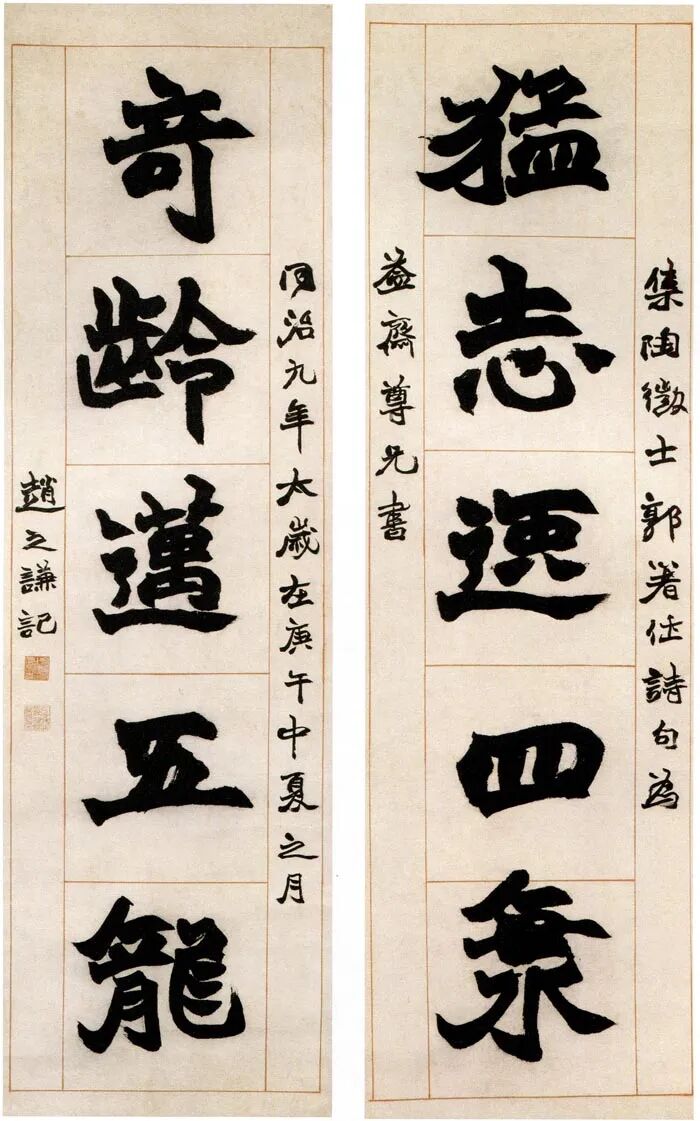 集陶徵士郭著作詩句為
猛志逸四海
益齋尊兄書
同治九年太歲在庚午中夏之月
奇齡邁五龍
趙之謙記